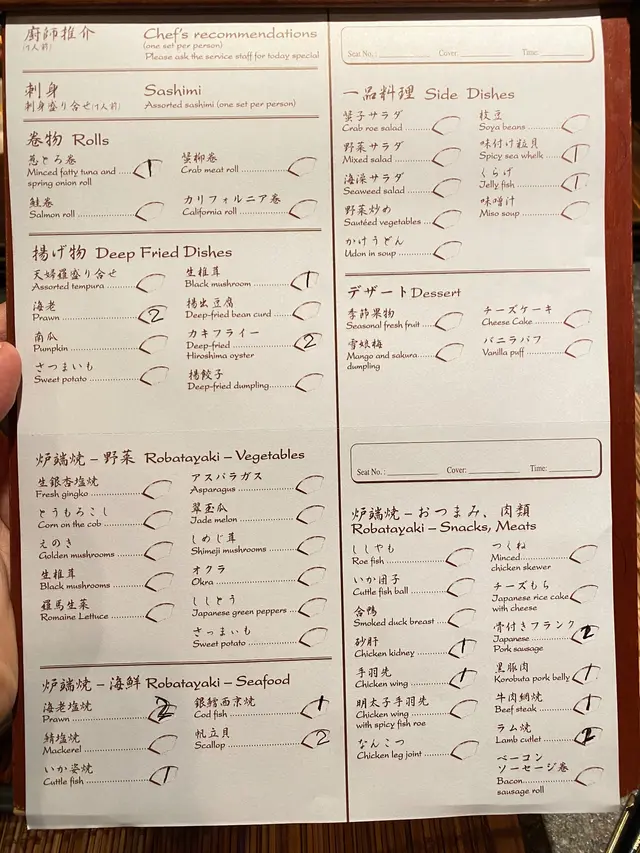 廚師推介 Chef's recommendations
(1人前) (one set per person)
Please ask the service staff for today special
刺身 Sashimi
刺身盛り合せ(1人前) Assorted sashimi (one set per person)
巻物 Rolls
葱とろ巻
Minced fatty tuna and ..... 1
spring onion roll
鮭巻
Salmon roll
蟹柳巻
Crab meat roll
カリフォルニア巻
California roll
揚げ物 Deep Fried Dishes
天婦羅盛り合せ
Assorted tempura
海老
Prawn 2
南瓜
Pumpkin
さつまいも
Sweet potato
生椎茸
Black mushroom 1
揚出豆腐
Deep-fried bean curd
カキフライー
Deep-fried 2
Hiroshima oyster
揚餃子
Deep-fried dumpling
Seat No. : Cover: Time:
一品料理 Side Dishes
蟹子サラダ
Crab roe salad
野菜サラダ
Mixed salad
海藻サラダ
Seaweed salad
野菜炒め
Sautéed vegetables
かけうどん
Udon in soup
枝豆
Soya beans
味付け粒貝
Spicy sea whelk 1
くらげ
Jelly fish 1
味噌汁
Miso soup
デザート Dessert
季節果物
Seasonal fresh fruit
雪娘梅
Mango and sakura
dumpling
チーズケーキ
Cheese Cake
バニラパフ
Vanilla puff
炉端焼 – 野菜 Robatayaki – Vegetables
生銀杏塩焼
Fresh gingko
とうもろこし
Corn on the cob
えのき
Golden mushrooms
生椎茸
Black mushrooms
羅馬生菜
Romaine Lettuce
アスパラガス
Asparagus
翠玉瓜
Jade melon
しめじ茸
Shimeji mushrooms
オクラ
Okra
ししとう
Japanese green peppers
さつまいも
Sweet potato
炉端焼 – 海鮮 Robatayaki – Seafood
海老塩焼
Prawn 2
鯖塩焼
Mackerel
いか姿焼
Cuttle fish 1
銀鱈西京焼
Cod fish 1
帆立貝
Scallop 2
Seat No. : Cover: Time:
炉端焼 – おつまみ、肉類
Robatayaki – Snacks, Meats
ししやも
Roe fish
いか団子
Cuttle fish ball
合鴨
Smoked duck breast
砂肝
Chicken kidney 1
手羽先
Chicken wing 1
明太子手羽先
Chicken wing
with spicy fish roe
なんこつ
Chicken leg joint
つくね
Minced
chicken skewer
チーズもち
Japanese rice cake
with cheese
骨付きフランク
Japanese 2
Pork sausage
黒豚肉
Korobuta pork belly 1
牛肉網焼
Beef steak 1
ラム焼
Lamb cutlet 2
ベーコン
ソーセージ巻
Bacon
sausage roll